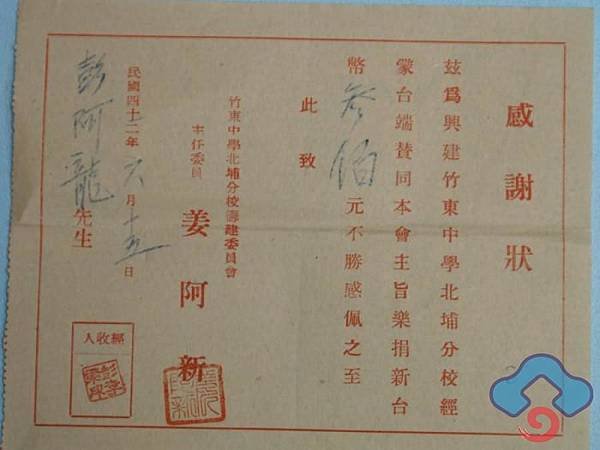 感謝狀
茲爲興建竹東中學北埔分校經
蒙台端贊同本會主旨樂捐新台
幣参佰元不勝感佩之至
此致
竹東中學北埔分校籌建委員會
主任委員 姜阿新
民國四十二年六月十五日
彭阿龍先生
經收人